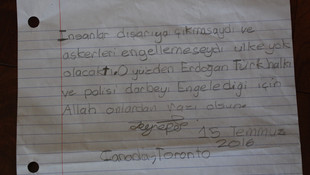 İnsanlar dışarıya çıkmasaydı ve
askerleri engellemeseydi ülke yok
olacaktı. O yüzden Erdoğan Türk halkı
ve polisi darbeyi Engelediği için
Allah onlardan razı olsun.
Zeynep
15 Temmuz
2016
Canada, Toronto